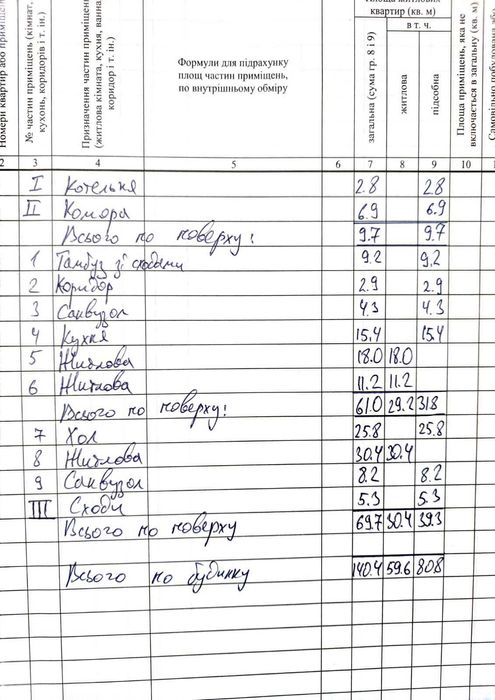 Номери квартир або приміщень
№ частини приміщень (кімнат, кухонь, коридорів і т. ін.)
Призначення частин приміщень (житлова кімната, кухня, ванна, коридор і т. ін.)
Формули для підрахунку
площ частин приміщень,
по внутрішньому обміру
квартир (кв. м)
загальна (сума гр. 8 і 9)
в т. ч.
житлова
підсобна
Площа приміщень, яка не включається в загальну (кв. м)
Самовільно побудована або
2 3 4 5 6 7 8 9 10 1
I Котельня 2.8 2.8
II Комора 6.9 6.9
Всього по поверху: 9.7 9.7
1 Тамбуз зі сходами 9.2 9.2
2 Коридор 2.9 2.9
3 Санвузол 4.3 4.3
4 Кухня 15.4 15.4
5 Житлова 18.0 18.0
6 Житлова 11.2 11.2
Всього по поверху: 61.0 29.2 31.8
7 Хол 25.8 25.8
8 Житлова 30.4 30.4
9 Санвузол 8.2 8.2
III Сходи 5.3 5.3
Всього по поверху 69.7 30.4 39.3
Всього по будинку 140.4 59.6 80.8